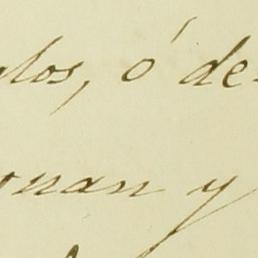 glos, ó de-
onan y